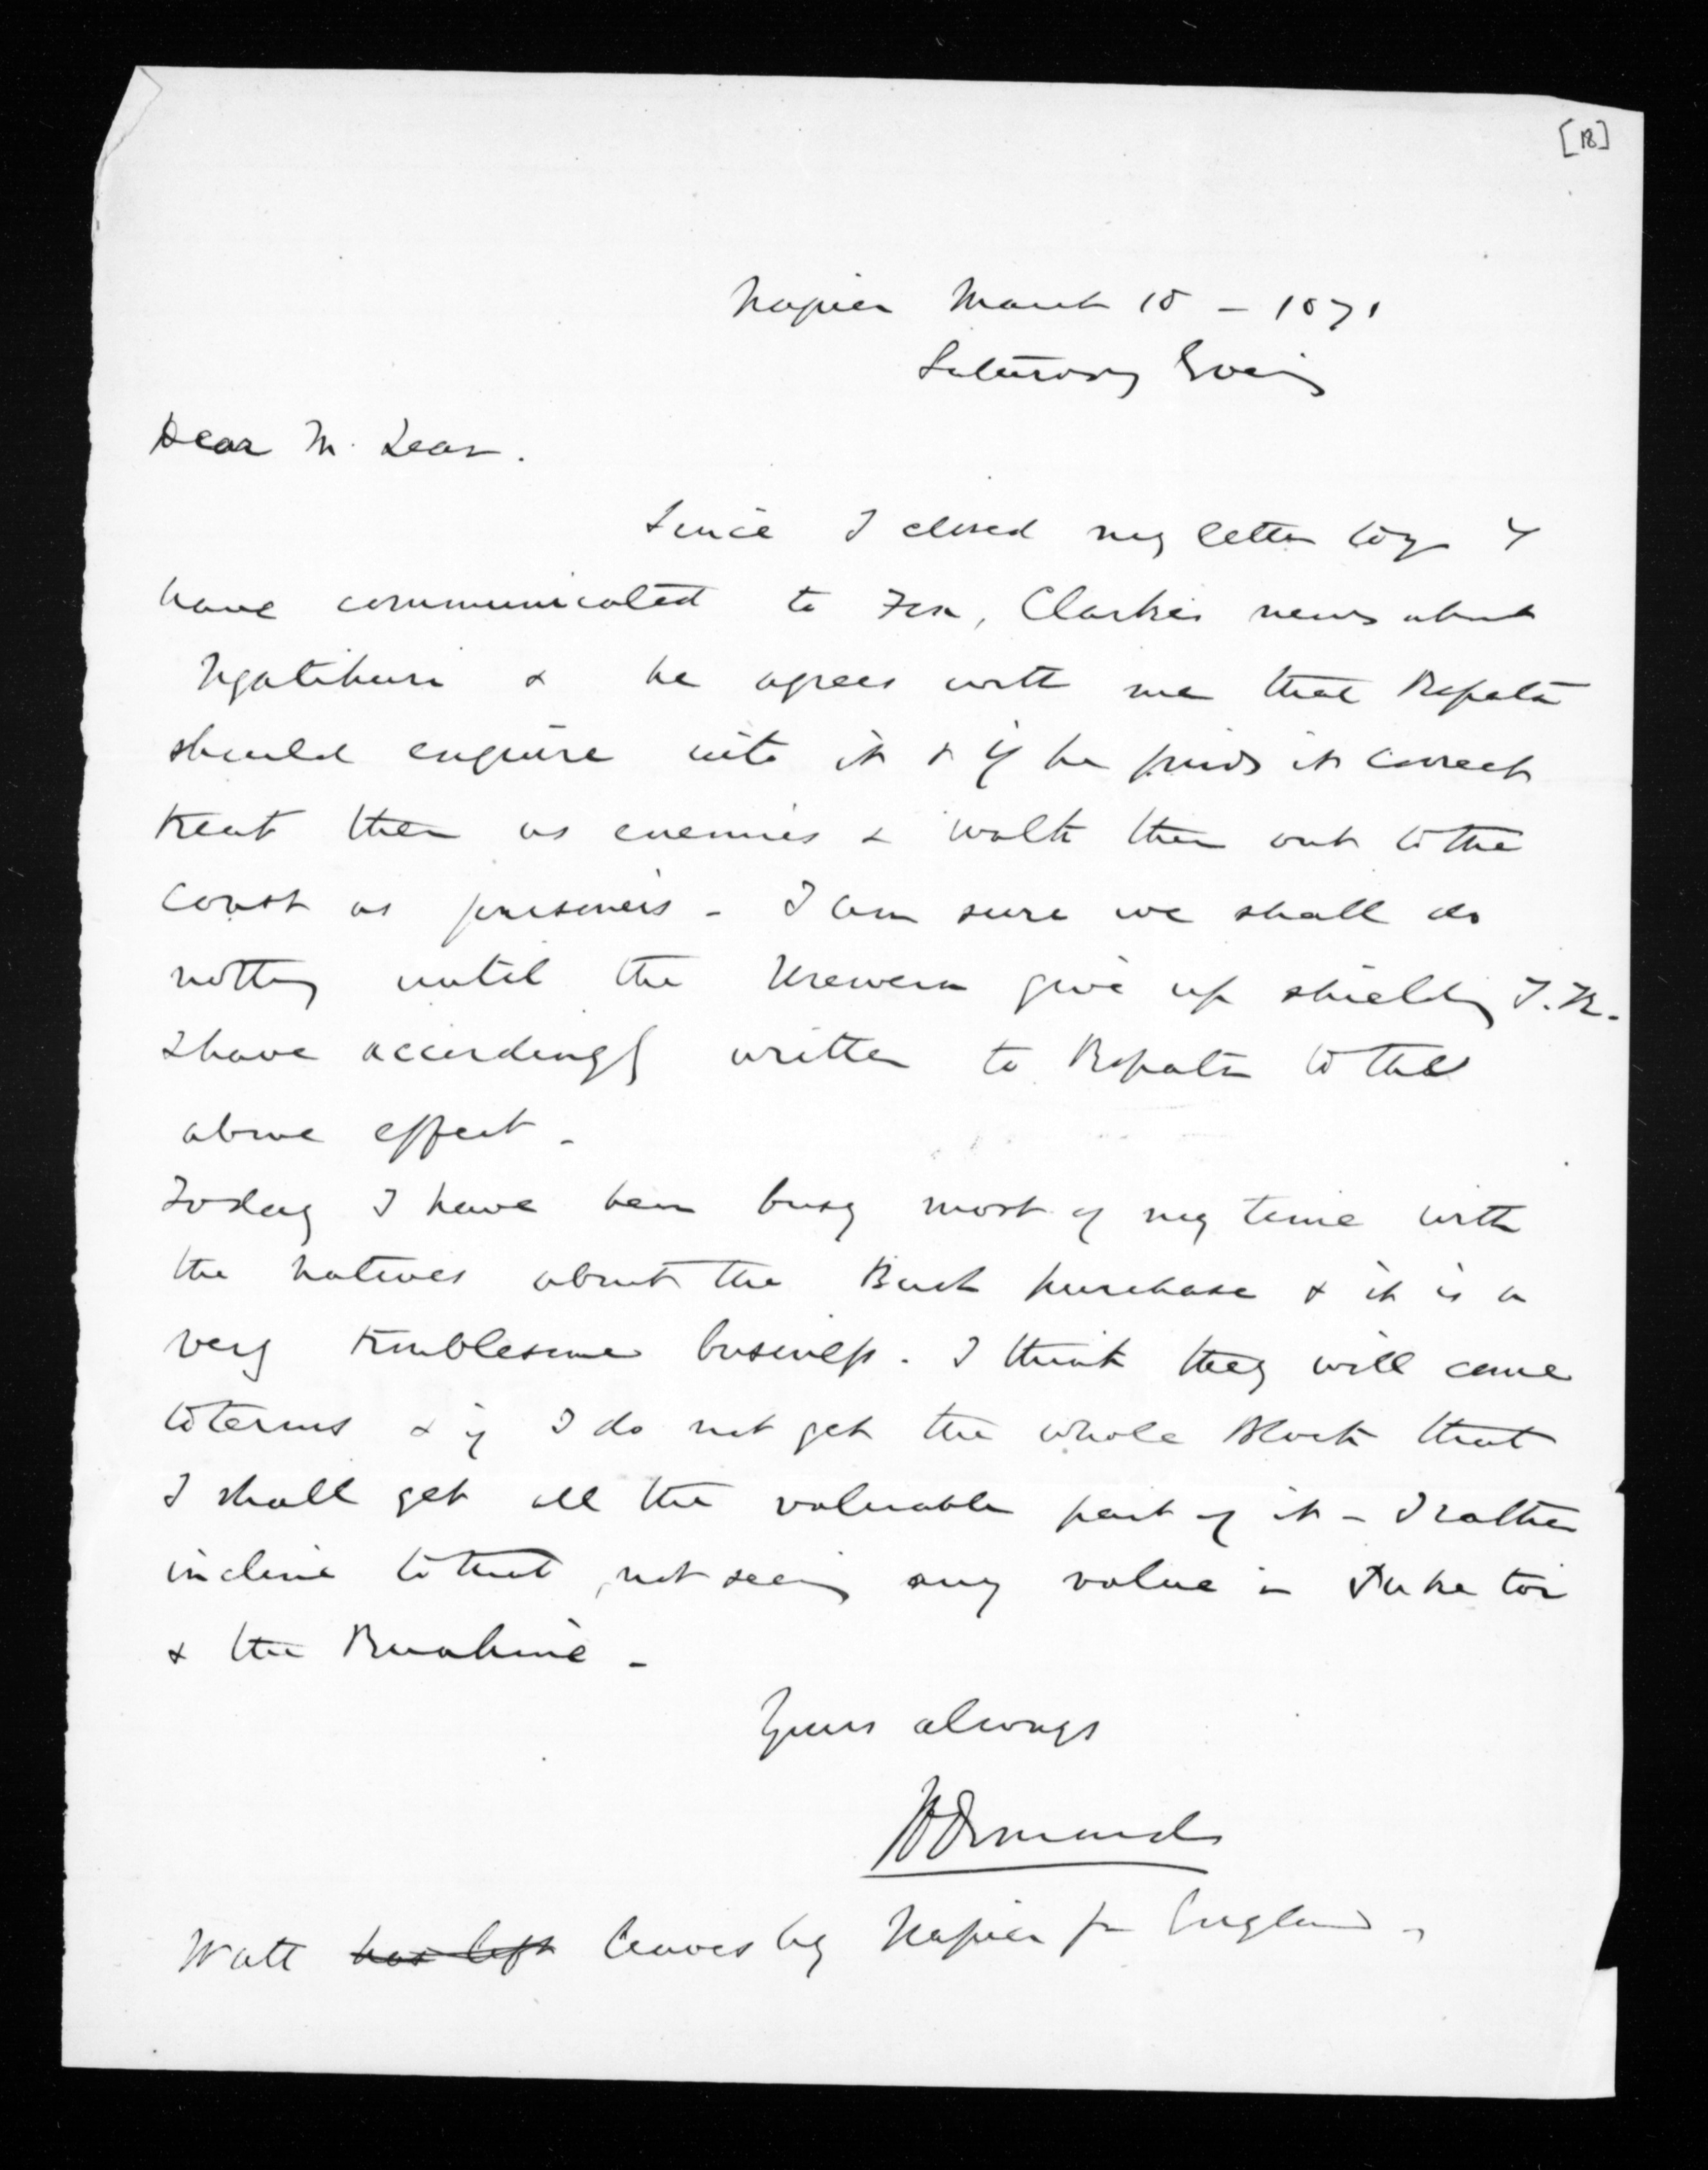 [18]
Napier March 18 - 1871
Saturday Eveg
Dear McLean.
Since I closed my letter to you I
have communicated to Fox, Clarke's news about
Ngatihuri & he agrees with me that Ropata
should enquire into it & if he finds it correct
treat them as enemies & walk them out to the
Coast as prisoners - I am sure we shall do
nothing until the Urewera give up shielding T.K.
I have accordingly written to Ropata to the
above effect -
Today I have been busy most of my time with
the natives about the Bush purchase & it is a
very troublesome business. I think they will come
to terms & if I do not get the whole Block that
I shall get all the valuable part of it - I rather
incline to that, not seeing any value in Puke toi
& the Ruahine -
Yours always
JDOrmond
Watt has left leaves by Napier for England -